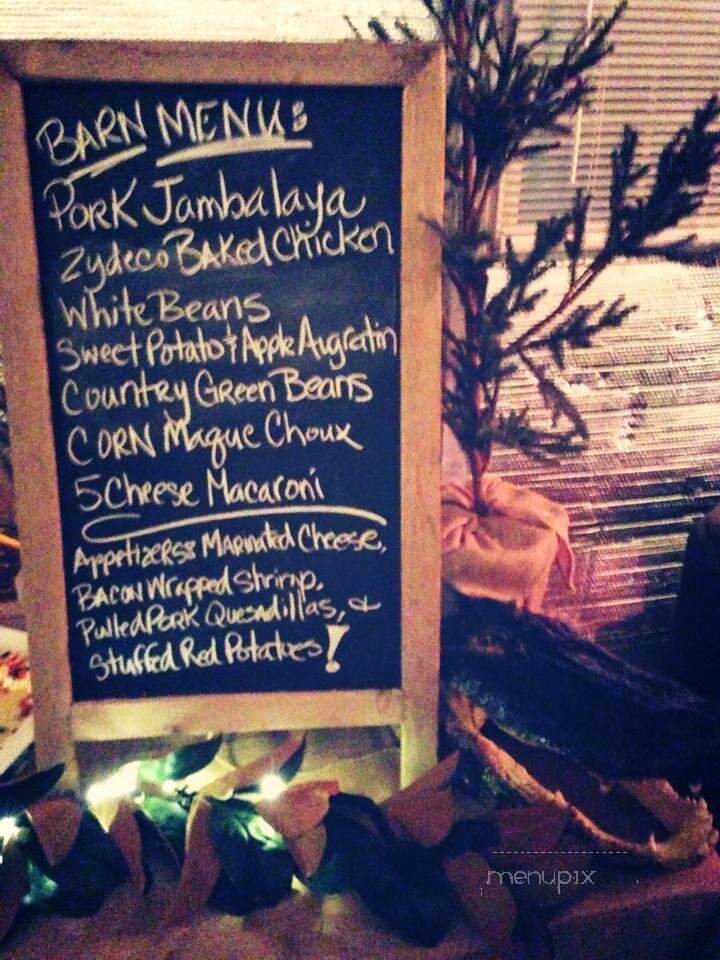 BARN MENU:
PORK Jambalaya
Zydeco BAKED Chicken
White Beans
Sweet Potato & Apple Augratin
Country Green Beans
CORN Maque Choux
5 Cheese Macaroni
Appetizers: Marinated Cheese,
BACON Wrapped Shrimp,
Pulled PORK Quesadillas, &
Stuffed Red Potatoes!
menupix